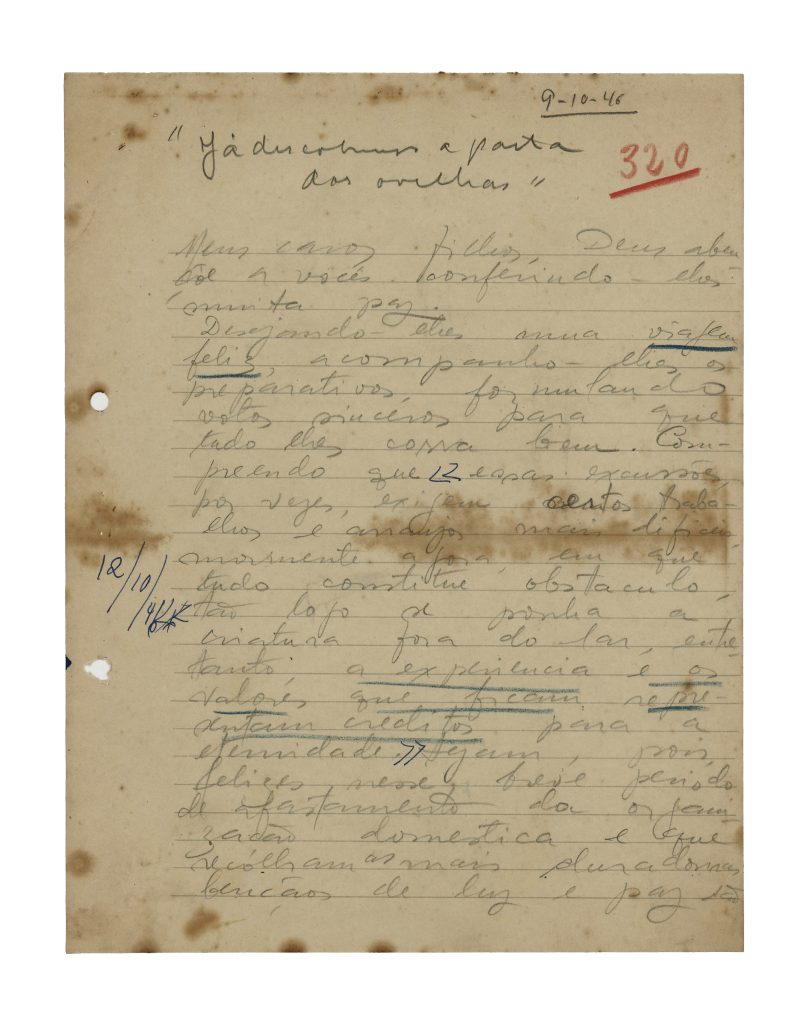 9-10-46
" Já descobrimos a porta
dos ovelhas "
320
Meus caros filhos, Deus aben
çôe a vocês conferindo-lhes
muita paz.
Desejando-lhes uma viagem
feliz, acompanho-lhes os
preparativos, formulando
votos sinceros para que
tudo lhes corra bem. Com-
preendo que essas excussões,
por vezes, exigem certos traba-
lhos e arranjos mais dificeis,
mormente agora, em que
tudo constitue obstaculo,
12/10/46
tão logo se ponha a
criatura fora do lar, entre-
tanto, a experiencia e os
valores que ficam repre-
sentam creditos para a
eternidade. Sejam, pois,
felices nesse breve periodo
de afastamento da organi-
zação domestica e que
recolham as mais duradouras
bençãos de luz e paz são